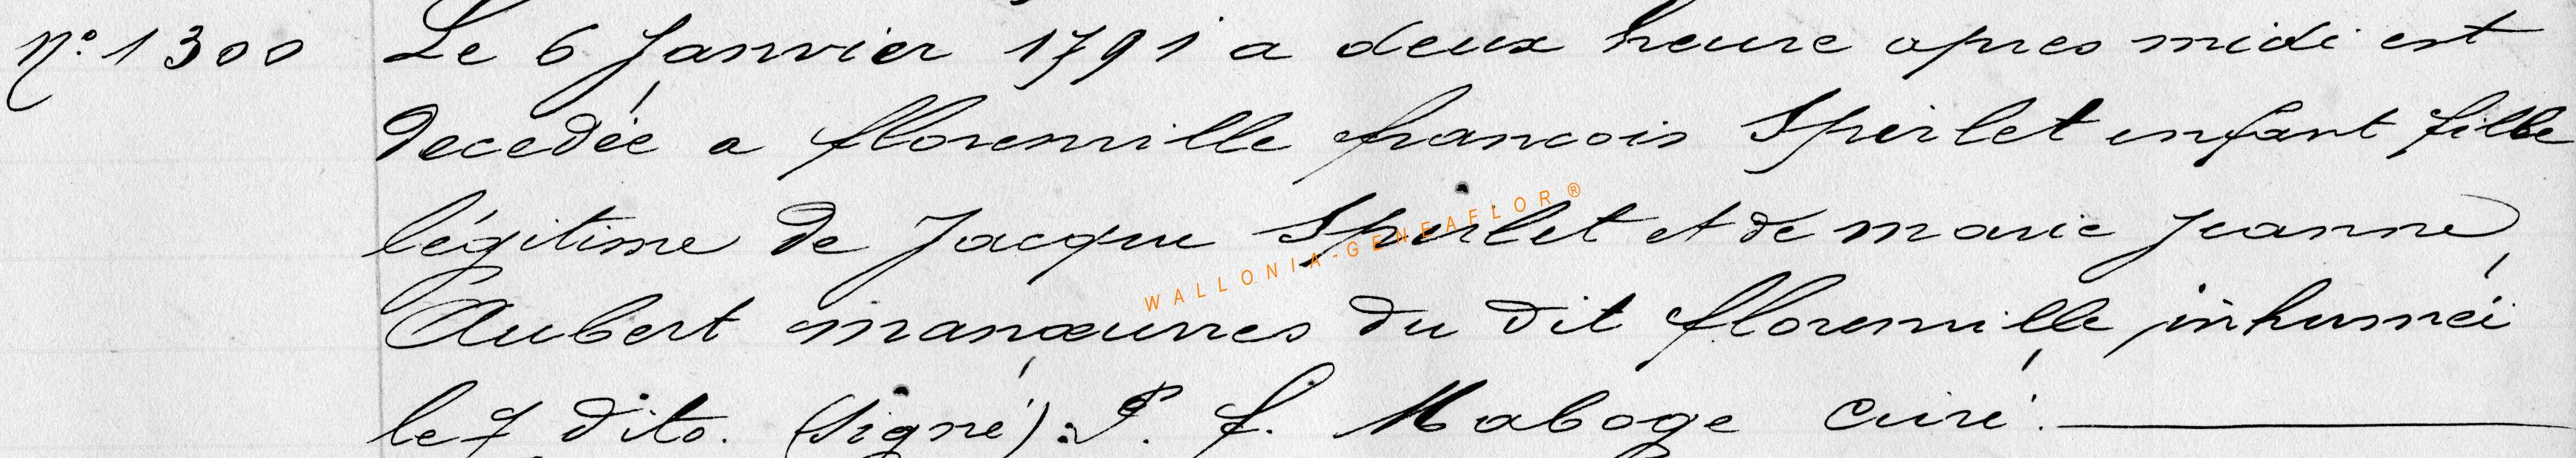 N.° 1300 Le 6 Janvier 1791 a deux heure apres midi est
decedée a florenville francois Spirlet enfant fille
légitime de Jacque Spirlet et de marie jeanne
Aubert manœuvres du dit florenville inhumée
le 7 dito. (Signé): P. f. Maboge curé.
WALLONIA-GENEAFLOR®